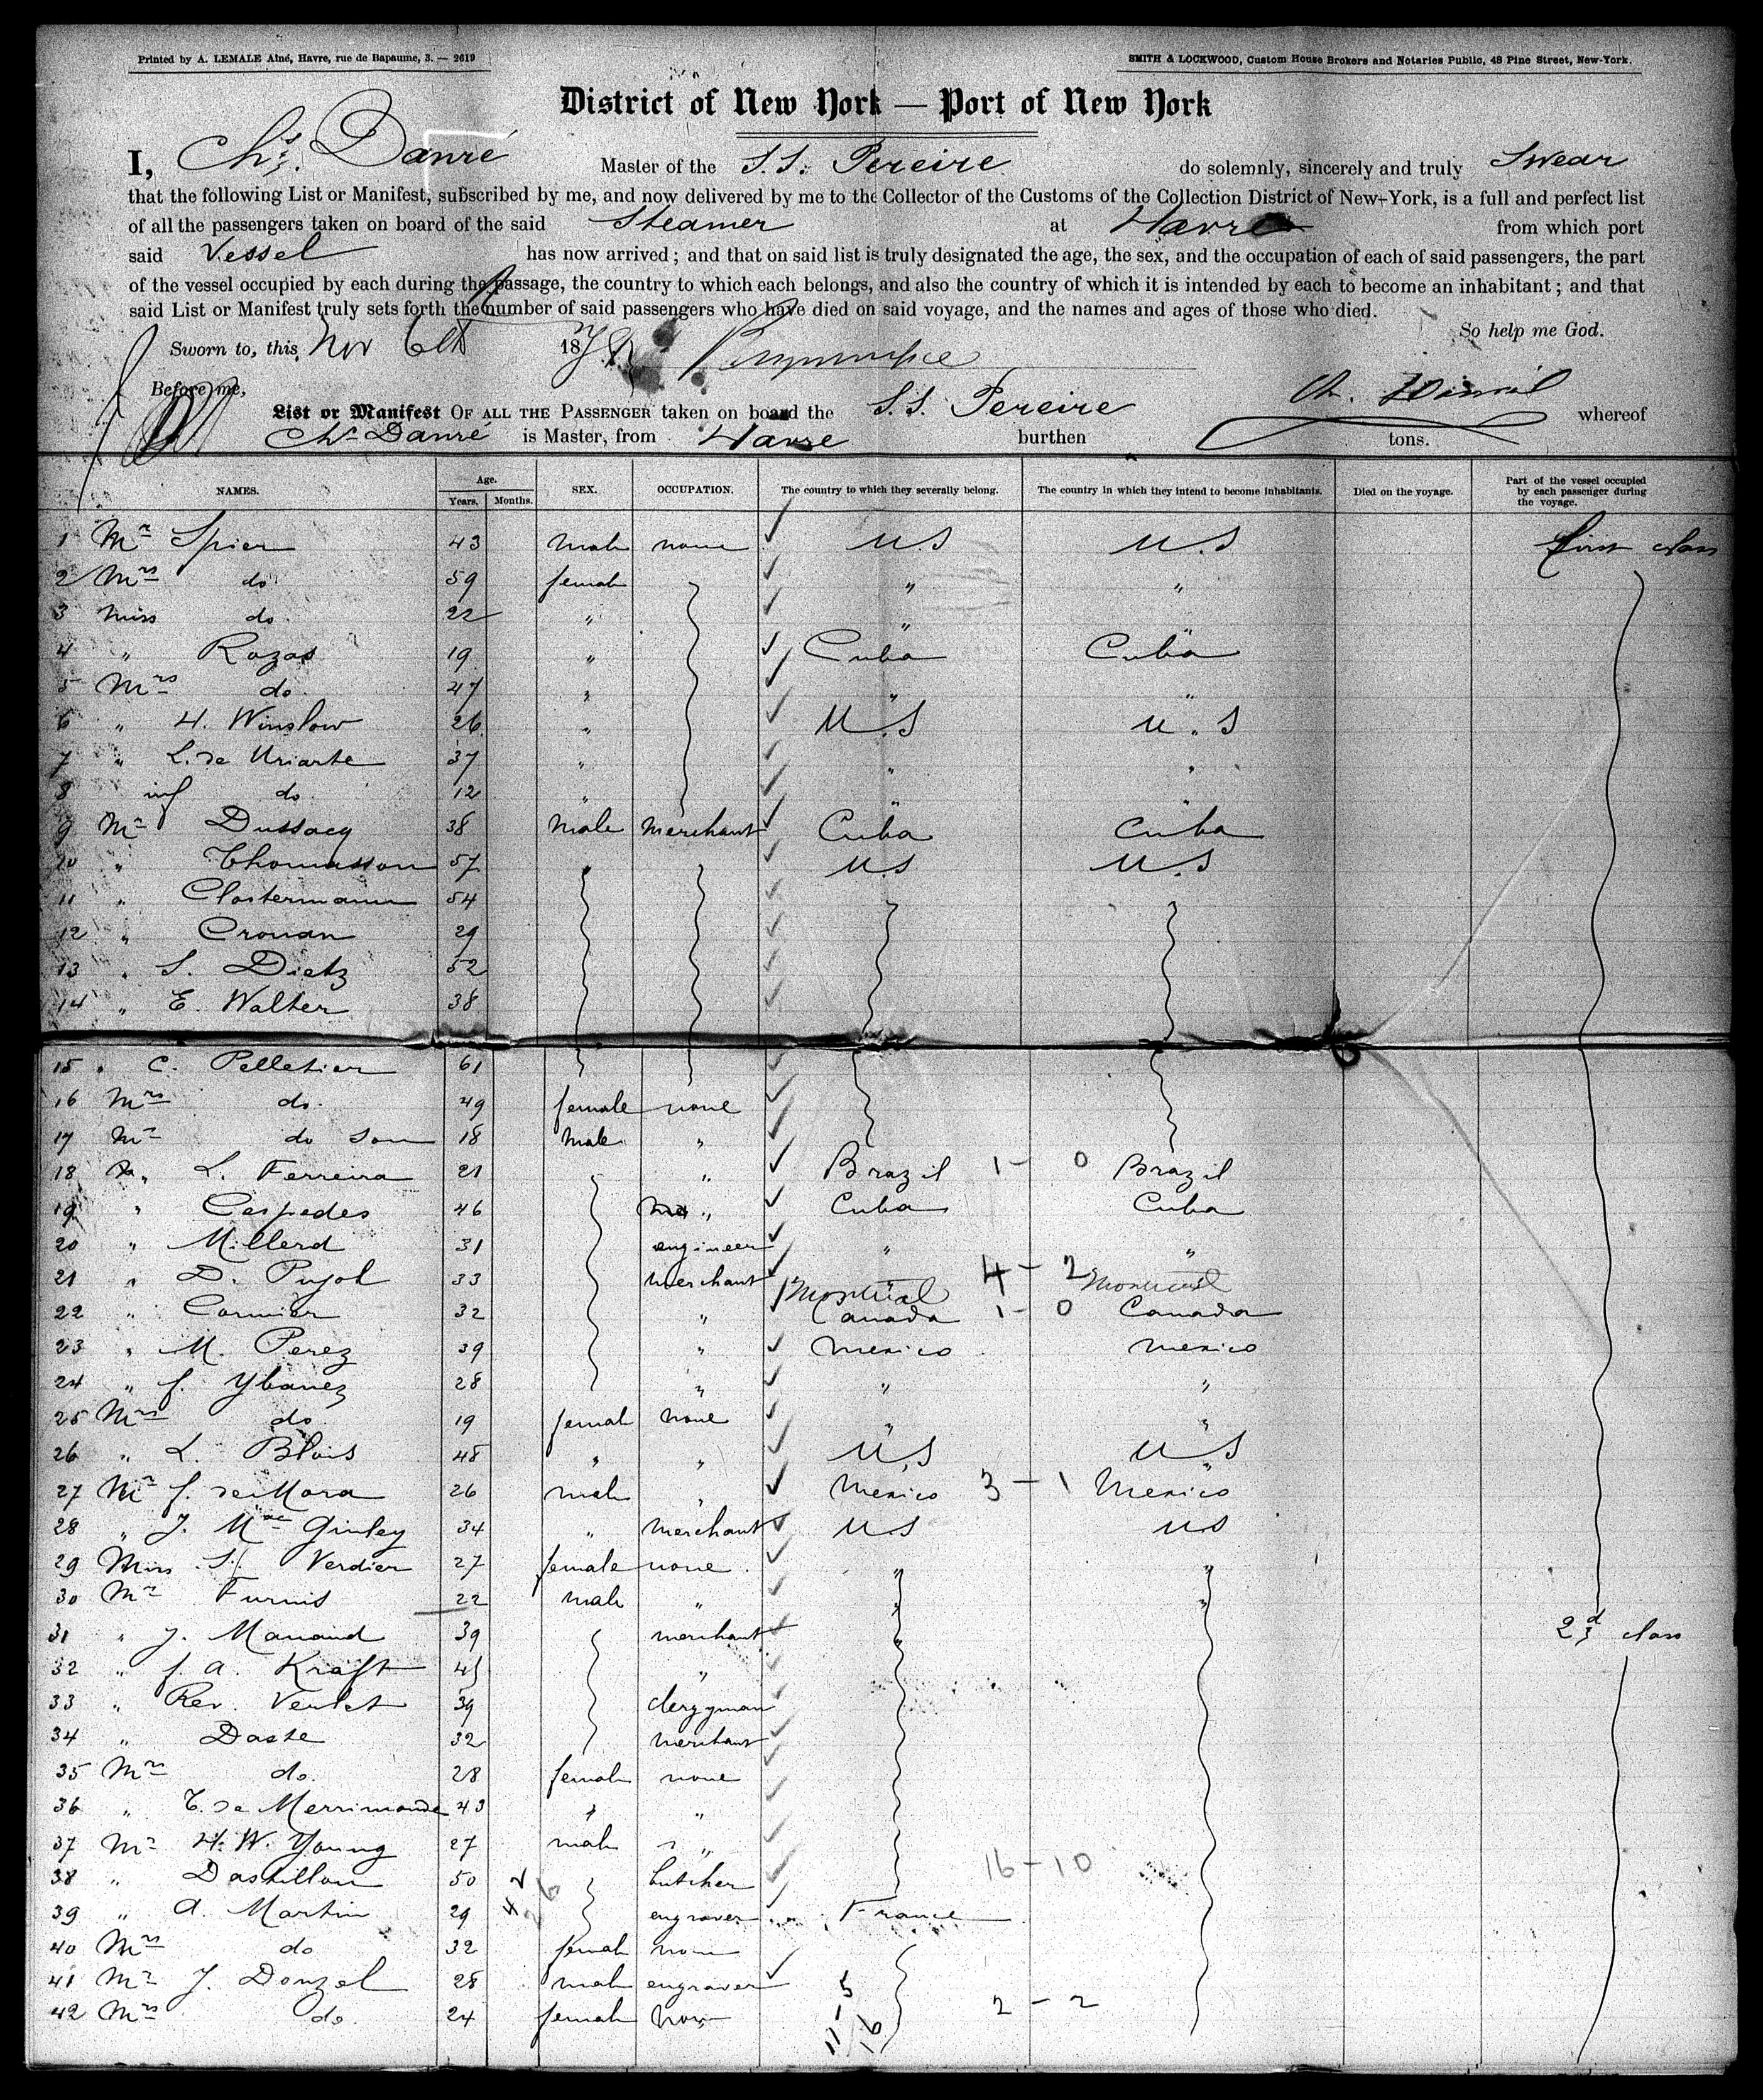 Printed by A. LEMALE Aîné, Havre, rue de Bapaume, 3. — 2619
SMITH & LOCKWOOD, Custom House Brokers and Notaries Public, 48 Pine Street, New-York.
District of New York — Port of New York
I, Chs. Danré Master of the S.S. Pereire do solemnly, sincerely and truly Swear
that the following List or Manifest, subscribed by me, and now delivered by me to the Collector of the Customs of the Collection District of New-York, is a full and perfect list
of all the passengers taken on board of the said Steamer at Havre from which port
said Vessel has now arrived; and that on said list is truly designated the age, the sex, and the occupation of each of said passengers, the part
of the vessel occupied by each during the passage, the country to which each belongs, and also the country of which it is intended by each to become an inhabitant; and that
said List or Manifest truly sets forth the number of said passengers who have died on said voyage, and the names and ages of those who died.
So help me God.
Sworn to, this Nov 6th 187
Before me,
List or Manifest OF ALL THE PASSENGER taken on board the S.S. Pereire whereof
Chs Danré is Master, from Havre burthen tons.
NAMES. Age. Years. Months. SEX. OCCUPATION. The country to which they severally belong. The country in which they intend to become inhabitants. Died on the voyage. Part of the vessel occupied by each passenger during the voyage.
1 Mr Spier 43 male none U.S U.S first class
2 Mrs do 59 female " "
3 Miss do. 22 " "
4 " Rozas 19 " Cuba Cuba
5 Mrs do. 47 " " "
6 " H. Winslow 26 " U.S U.S
7 " L. de Uriarte 37 " " "
8 inf do 12 " " "
9 Mr Dussacq 38 male merchant Cuba Cuba
10 " Thomasson 57 U.S U.S
11 " Clostermann 54
12 " Crouan 29
13 " S. Dietz 52
14 " E. Walter 38
15 " C. Pelletier 61
16 Mrs do. 49 female none
17 Mr do son 18 male "
18 " L. Ferreira 21 " Brazil 1 - 0 Brazil
19 " Cespedes 46 " Cuba Cuba
20 " Millerd 31 engineer " "
21 " D. Pujol 33 merchant " 4 - 2 "
Montreal Montreal
22 " Cormier 32 " Canada 1 - 0 Canada
23 " M. Perez 39 " Mexico Mexico
24 " f. Ybanez 28 " " "
25 Mrs do 19 female none " "
26 " L. Blois 48 " " U.S U.S
27 Mr f. de Mora 26 male " Mexico 3 - 1 Mexico
28 " J. Mac Ginley 34 " merchant U.S U.S
29 Miss S. Verdier 27 female none " "
30 Mr Furnis 22 male " " "
31 " J. Manaud 39 merchant " 2d class
32 " f. a. Kraft 45 "
33 " Rev. Verlet 39 clergyman
34 " Daste 32 merchant
35 Mrs do. 28 female none
36 " T. de Merrimonde 43 " "
37 Mr H. W. Young 27 male "
38 " Dastillon 50 butcher 16 - 10
39 " a. Martin 29 engraver France
40 Mrs do 32 female none
41 Mr J. Donzel 28 male engraver 5
42 Mrs do. 24 female none 2 - 2